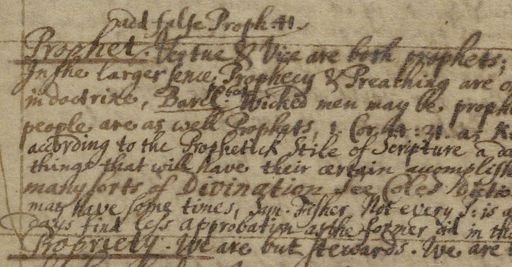 add false Proph
Prophet. Virtue & Vice are both prophets;
In the larger sence, Prophecy & Preaching are
in doctrine, Wicked men may be proph
people are as well Prophets, 1. Cor. 14: 31. as
according to the Prophetick Stile of Scripture a da
things that will have their certain accomplish
many sorts of Divination see Coles
may have some times, Fisher. Not every is a
days find less approbation as the former did in th
Propriety. We are but stewards. We are t